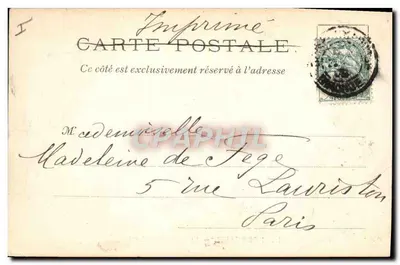 I
Imprimé
CARTE POSTALE
Ce côté est exclusivement réservé à l'adresse
Mademoiselle
Madeleine de Fege
5 rue Lauriston
Paris
CPAPHIL